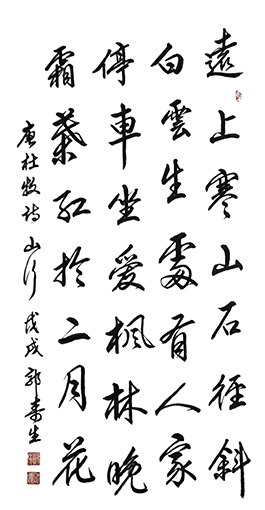 遠上寒山石徑斜
白雲生處有人家
停車坐愛楓林晚
霜葉紅於二月花
唐杜牧詩山行戊戌郭壽生